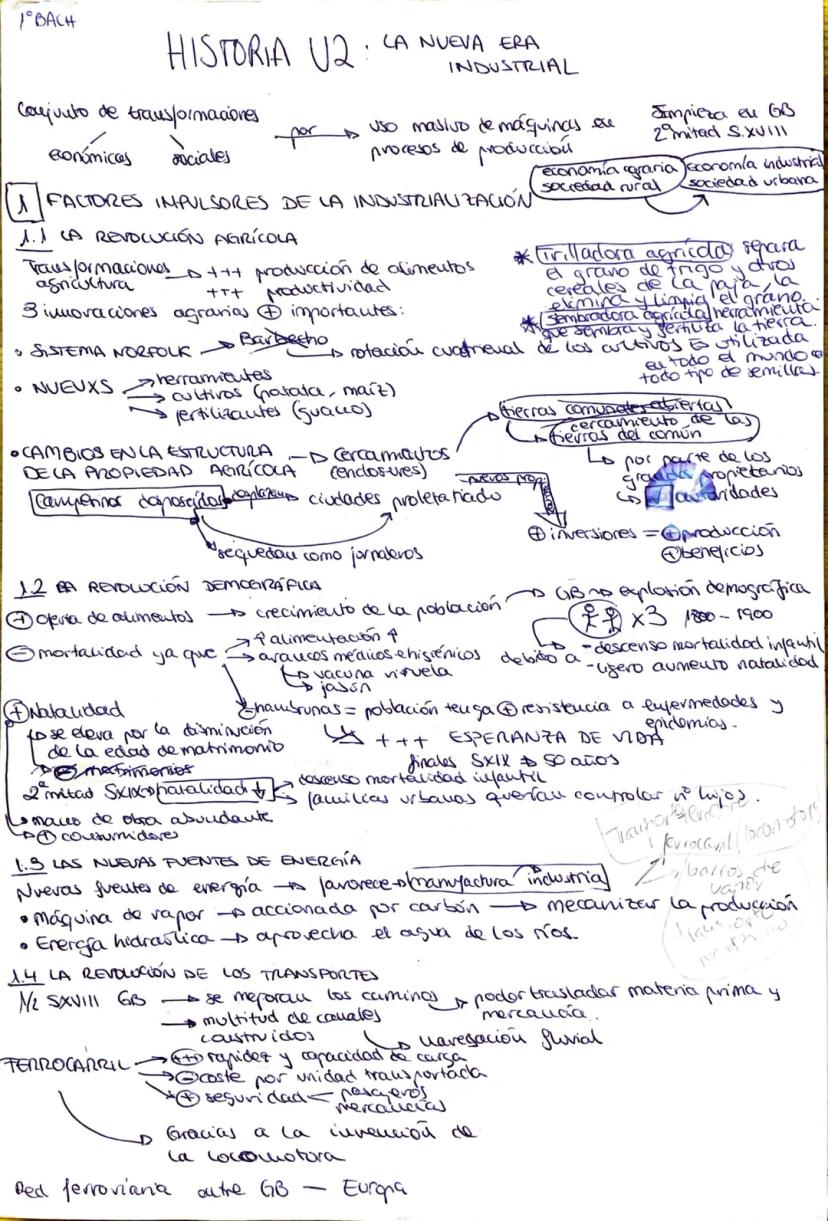 1º BACH
HISTORIA U2: LA NUEVA ERA
INDUSTRIAL
Conjunto de transformaciones
económicas sociales
por → uso masivo de máquinas en
procesos de producción
Empieza en GB
2ª mitad S.XVIII
economía agraria
sociedad rural
economía industrial
sociedad urbana
1 FACTORES IMPULSORES DE LA INDUSTRIALIZACIÓN
1.1 LA REVOLUCIÓN AGRÍCOLA
Transformaciones → +++ producción de alimentos
agricultura +++ productividad
3 innovaciones agrarias ⊕ importantes:
* Trilladora agrícola separa
el grano de trigo y otros
cereales de la paja, la
elimina y limpia el grano.
* Sembradora agrícola herramienta
que siembra y fertiliza la tierra.
Es utilizada
en todo el mundo
todo tipo de semillas.
• SISTEMA NORFOLK → Barbecho
→ rotación cuatrienal de los cultivos
• NUEVXS → herramientas
→ cultivos (patata, maíz)
→ fertilizantes (guano)
• CAMBIOS EN LA ESTRUCTURA → cercamientos
DE LA PROPIEDAD AGRÍCOLA (enclosures)
→ tierras comunales abiertas
→ cercamiento de las
tierras del común
→ por parte de los
grandes propietarios
→ autoridades
Campesinos desposeídos → ciudades proletariado
nuevos prop
se quedan como jornaleros
⊕ inversiones = ⊕ producción
⊕ beneficios
1.2 LA REVOLUCIÓN DEMOGRÁFICA
⊕ oferta de alimentos → crecimiento de la población
→ GB → explosión demográfica
x3 1800 - 1900
debido a - descenso mortalidad infantil
- ligero aumento natalidad
⊖ mortalidad ya que → ↑ alimentación ↑
→ avances médicos e higiénicos
→ vacuna viruela
→ jabón
⊖ hambrunas = población tenga ⊕ resistencia a enfermedades y
epidemias.
→ +++ ESPERANZA DE VIDA
finales SXIX → 50 años
⊕ Natalidad
→ se eleva por la disminución
de la edad de matrimonio
→ matrimonios
2ª mitad SXIX → natalidad ↓ → descenso mortalidad infantil
→ familias urbanas querían controlar nº hijos.
→ mano de obra abundante
→ ⊕ consumidores
1.3 LAS NUEVAS FUENTES DE ENERGÍA
Nuevas fuentes de energía → favorece → manufactura industrial
• máquina de vapor → accionada por carbón → mecanizar la producción
• Energía hidraúlica → aprovecha el agua de los ríos.
Transporte terrestre
ferrocarril (locomotora)
barcos de
vapor
transporte
marítimo
1.4 LA REVOLUCIÓN DE LOS TRANSPORTES
1/2 SXVIII GB → se mejoran los caminos → poder trasladar materia prima y
mercancía.
→ multitud de canales
construidos → navegación fluvial
FERROCARRIL → +++ rapidez y capacidad de carga
→ ⊖ coste por unidad transportada
→ ⊕ seguridad < pasajeros
mercancías
→ Gracias a la invención de
la locomotora
Red ferroviaria entre GB — Europa